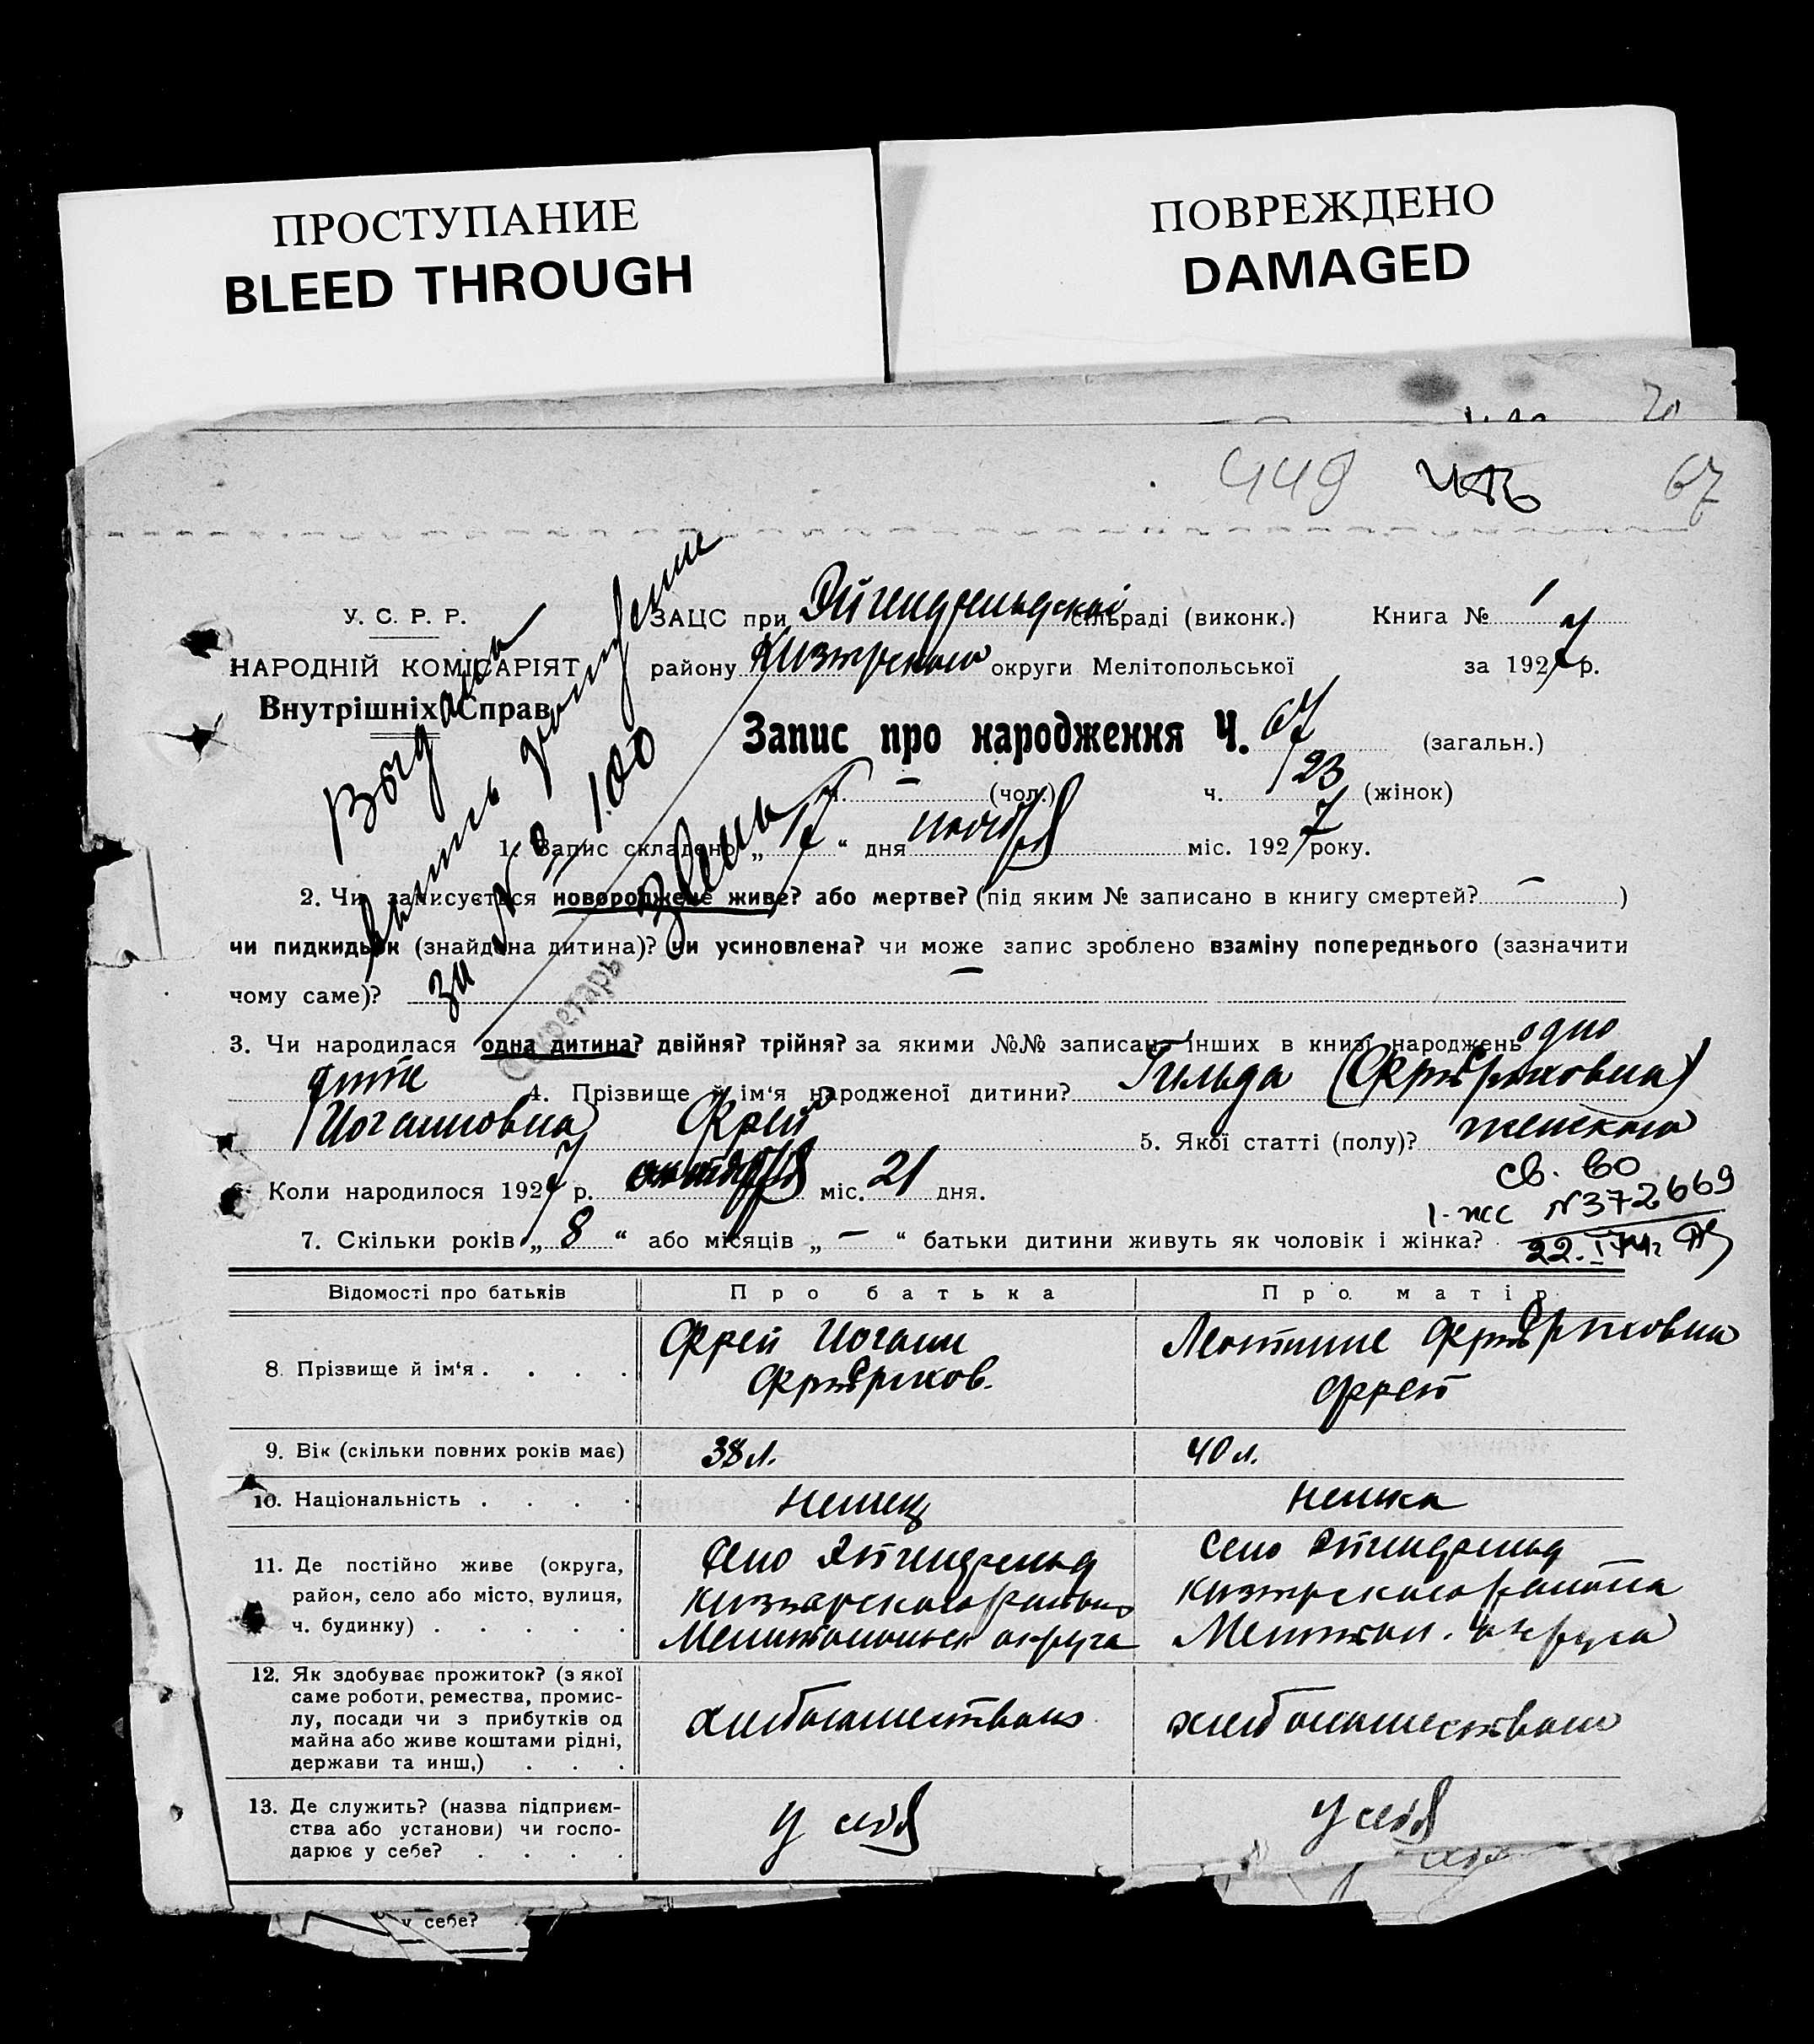 ПРОСТУПАНИЕ
BLEED THROUGH
ПОВРЕЖДЕНО
DAMAGED
70
449
67
У. С. Р. Р.
НАРОДНІЙ КОМІСАРІЯТ
Внутрішніх Справ
ЗАЦС при Эйгенфельдской сільраді (виконк.)
Книга № 1
району Кизиярского округи Мелітопольської
за 1927 р.
Запис про народження Ч. 67 (загальн.)
ч. — (чол.) ч. 23 (жінок)
Выдана
выпись рождении
за № 100
Секретарь
1. Запис складено „ 17 “ дня ноября міс. 1927 року.
2. Чи записується новороджене живе? або мертве? (під яким № записано в книгу смертей? — )
чи пидкидьок (знайдена дитина)? чи усиновлена? чи може запис зроблено взаміну попереднього (зазначити
чому саме)? —
3. Чи народилася одна дитина? двійня? трійня? за якими №№ записано інших в книзі народжень одно
дите 4. Прізвище й ім‘я народженої дитини? Гильда (Фридриховна)
Иогановна Фрей 5. Якої статті (полу)? женского
6. Коли народилося 1927 р. октября міс. 21 дня.
св. во
I-жс №372669
22.I 74г
7. Скільки років „ 8 “ або місяців „ — “ батьки дитини живуть як чоловік і жінка?
Відомості про батьків
Про батька
Про матір
8. Прізвище й ім‘я . . . .
Фрей Иоганн
Фридрихов.
Леотине Фридриховна
Фрей
9. Вік (скільки повних років має)
38 л.
40 л.
10. Національність . . . .
немец
немка
11. Де постійно живе (округа,
район, село або місто, вулиця,
ч. будинку) . . . . .
Село Эйгенфельд
Кизиярского района
Мелитопольск округа
Село Эйгенфельд
Кизиярского района
Мелитоп. округа
12. Як здобуває прожиток? (з якої
саме роботи, ремества, промис-
лу, посади чи з прибутків од
майна або живе коштами рідні,
держави та инш,) . . .
хлебопашеством
хлебопашеством
13. Де служить? (назва підприєм-
ства або установи) чи госпо-
дарює у себе? . . . .
у себя
у себя
у себе?